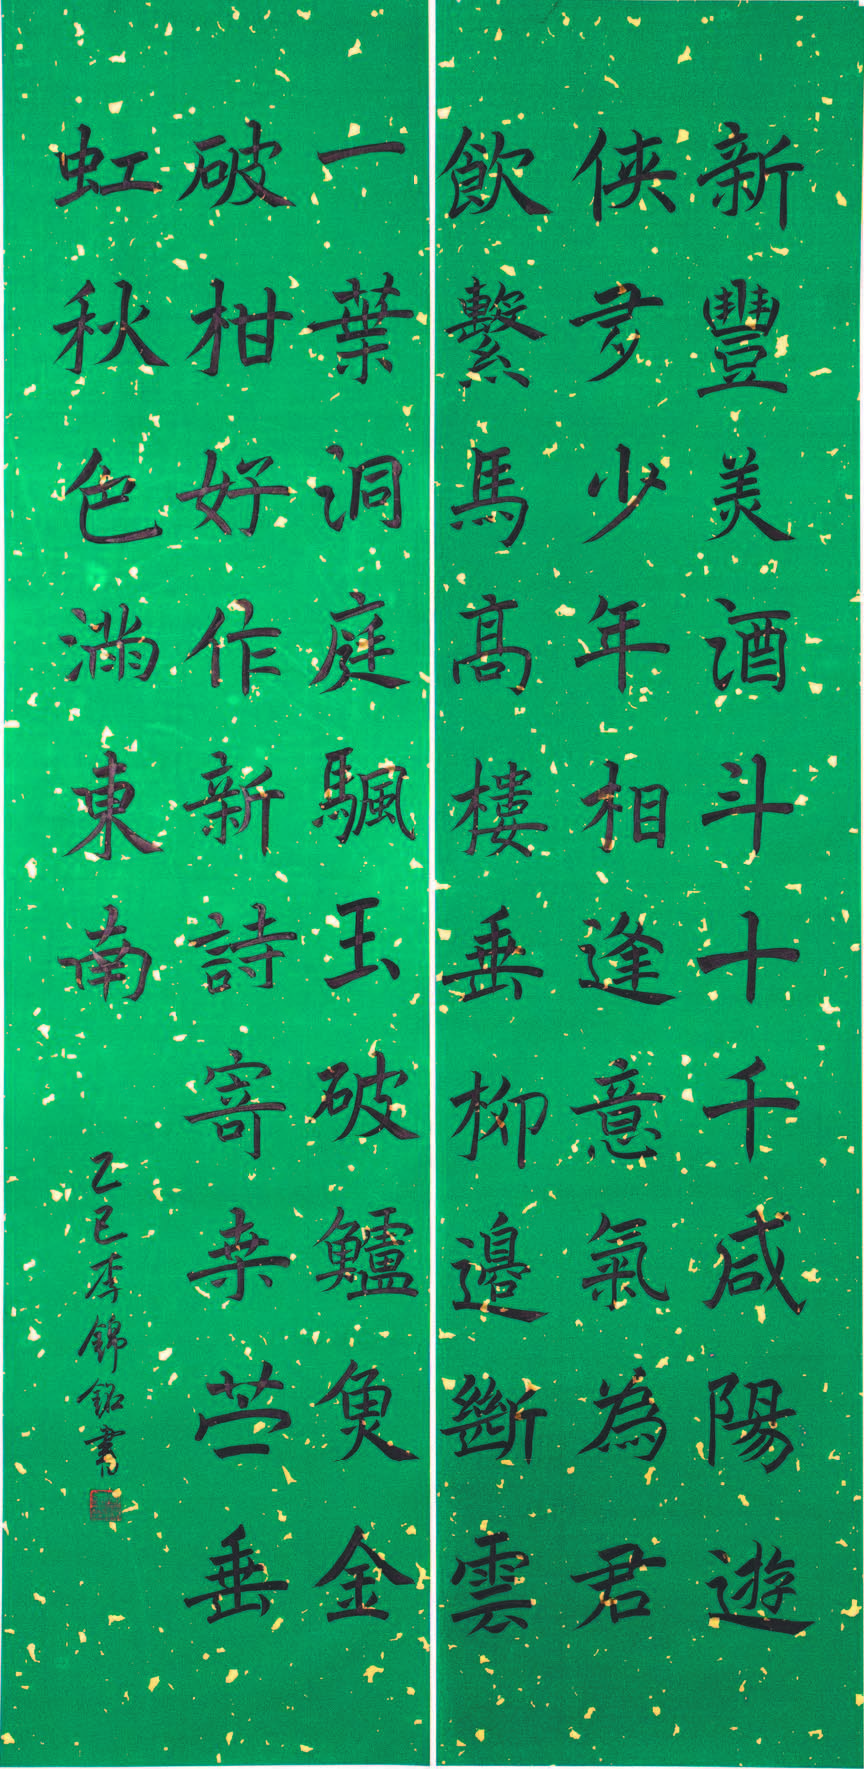 新豐美酒斗十千咸陽遊
侠多少年相逢意氣為君
飲繫馬髙樓垂柳邊斷雲
一葉洞庭颿玉破鱸魚金
破柑好作新詩寄桒苎垂
虹秋色滿東南
乙巳李錦銘書